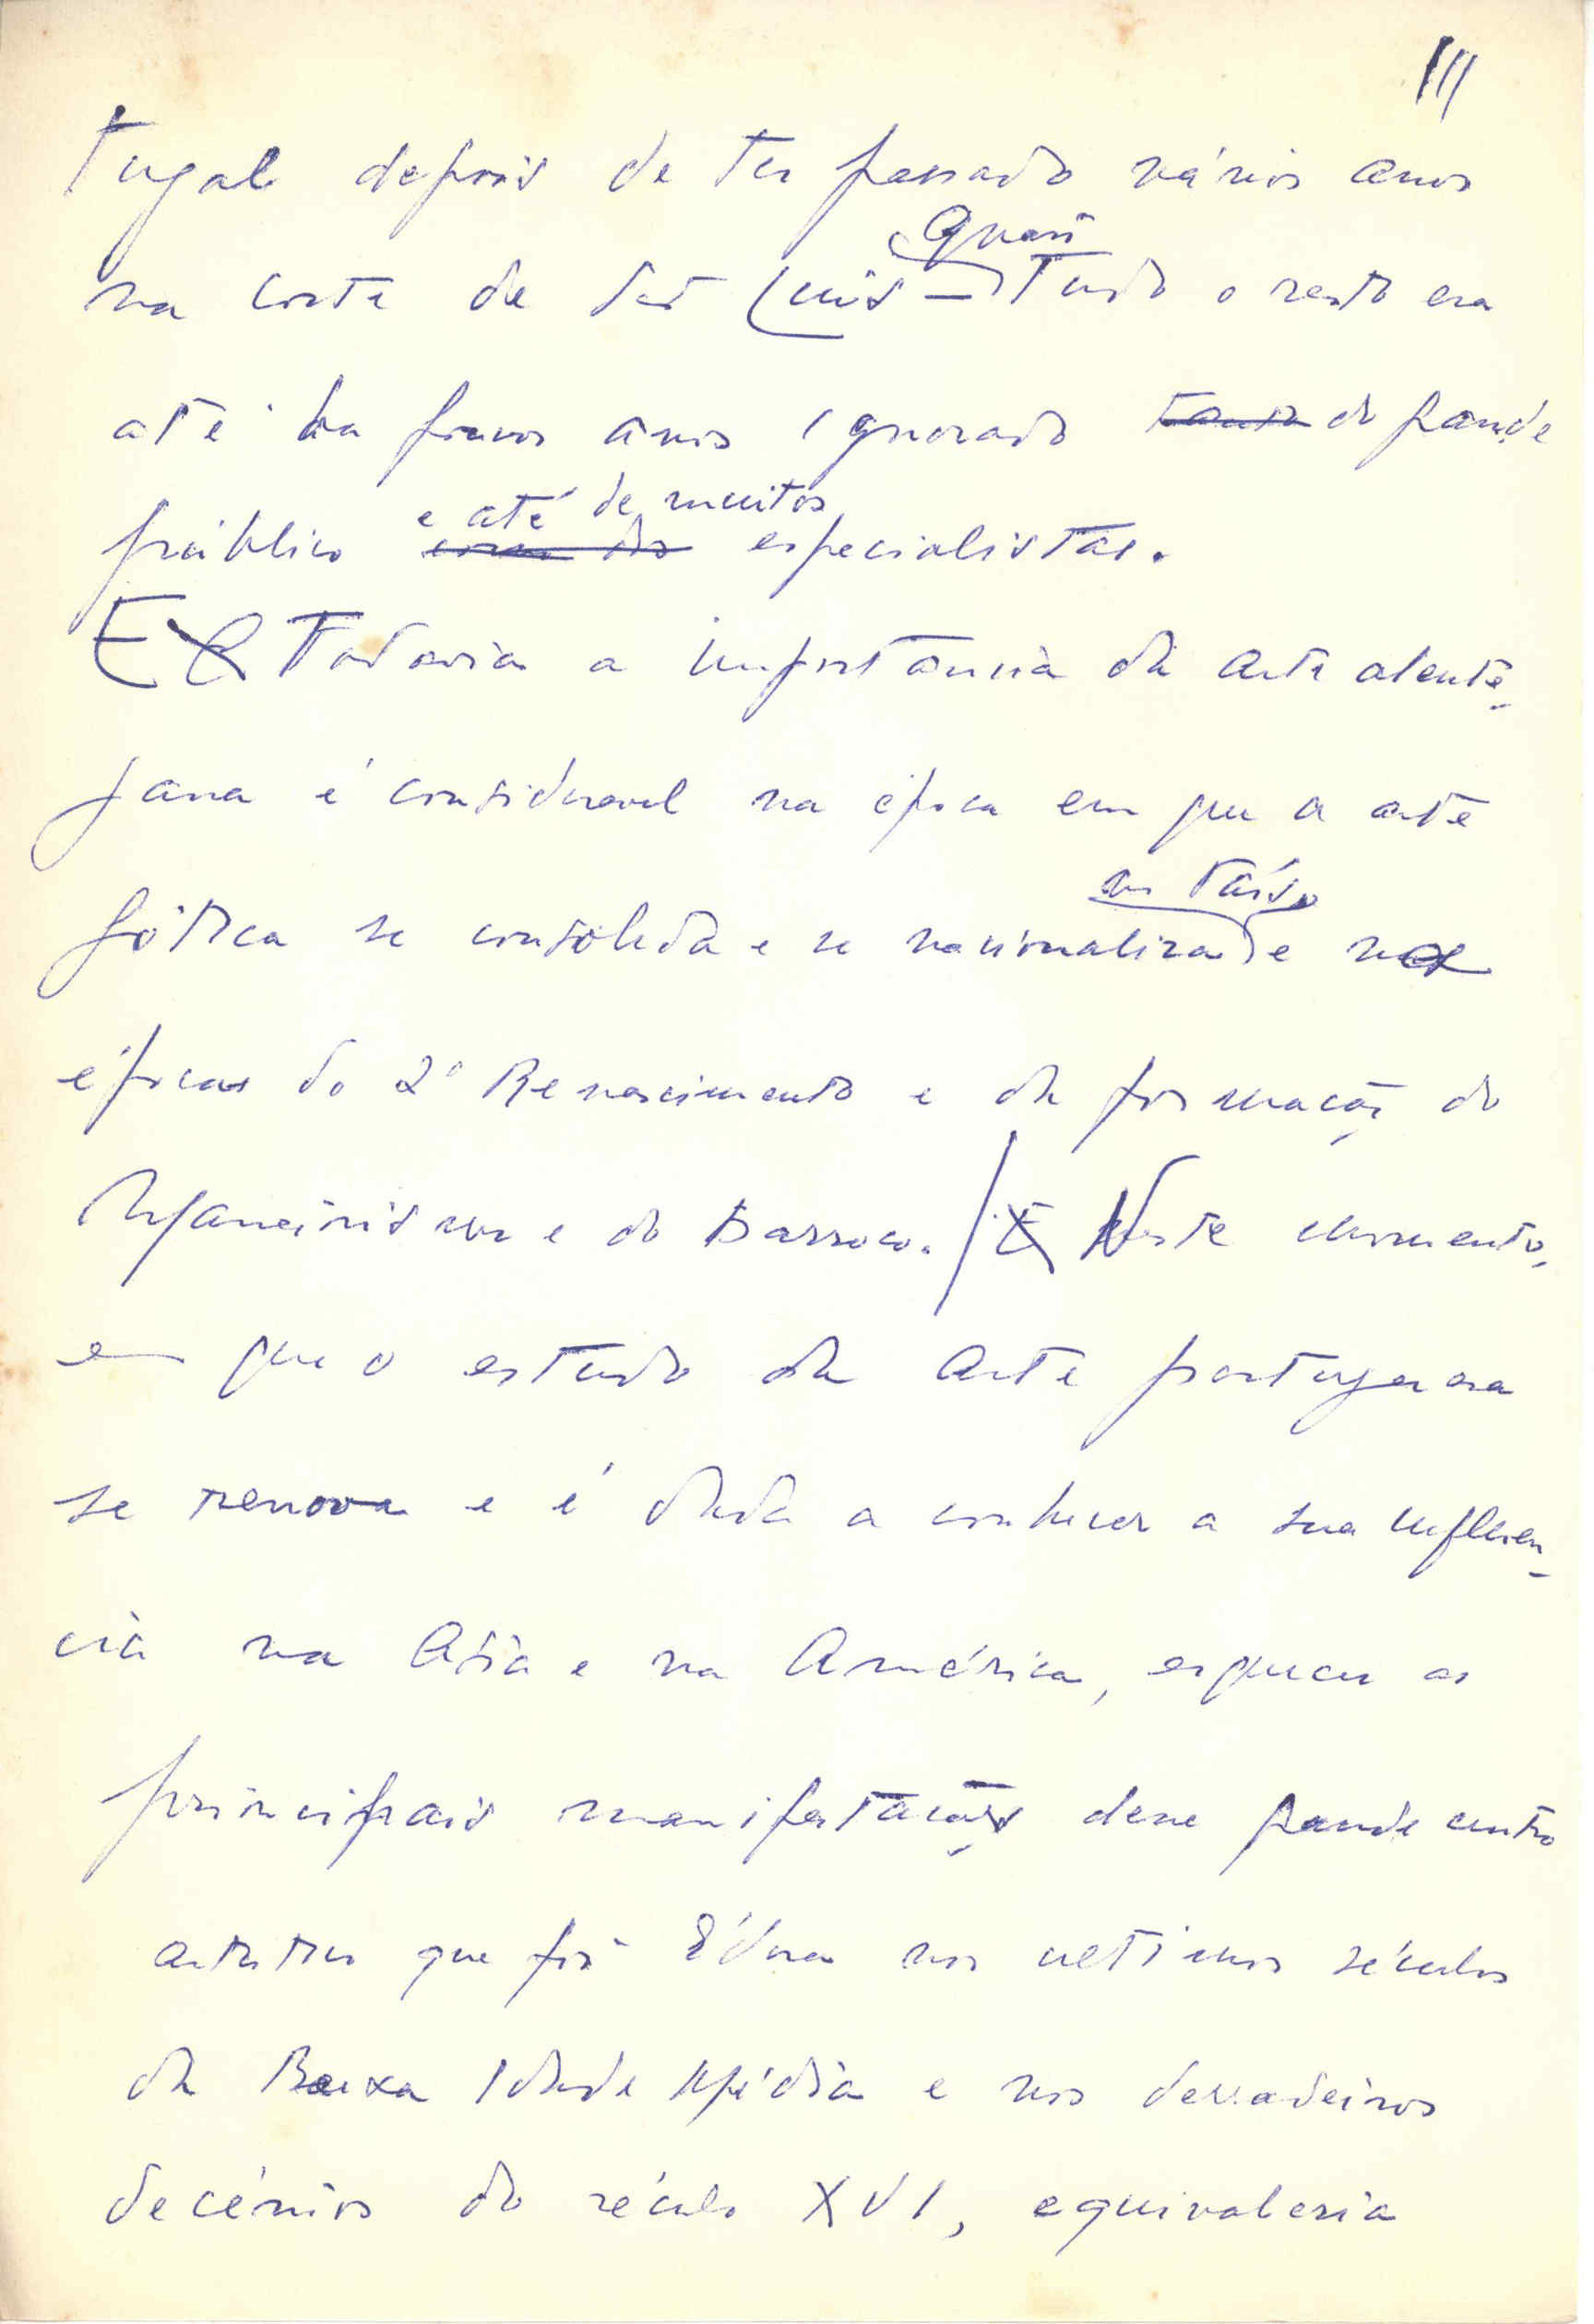 III
tugal depois de ter passado vários anos
na corte de São Luis — quasi tudo o resto era
até ha poucos anos ignorado tanto do grande
público e até de muitos especialistas.
E Todavia a importancia da arte alente-
jana é consideravel na época em que a arte
gótica se consolida e se nacionaliza e nas
épocas do 2º Renascimento e da formação do
Maneirismo e do Barroco. / E Neste momento,
em que o estudo da arte portuguesa
se renova e é dada a conhecer a sua influen-
cia na Asia e na América, esquecer as
principais manifestações desse grande centro
artistico que foi Évora nos ultimos séculos
da Baixa Idade Média e nos derradeiros
decénios do século XVI, equivaleria